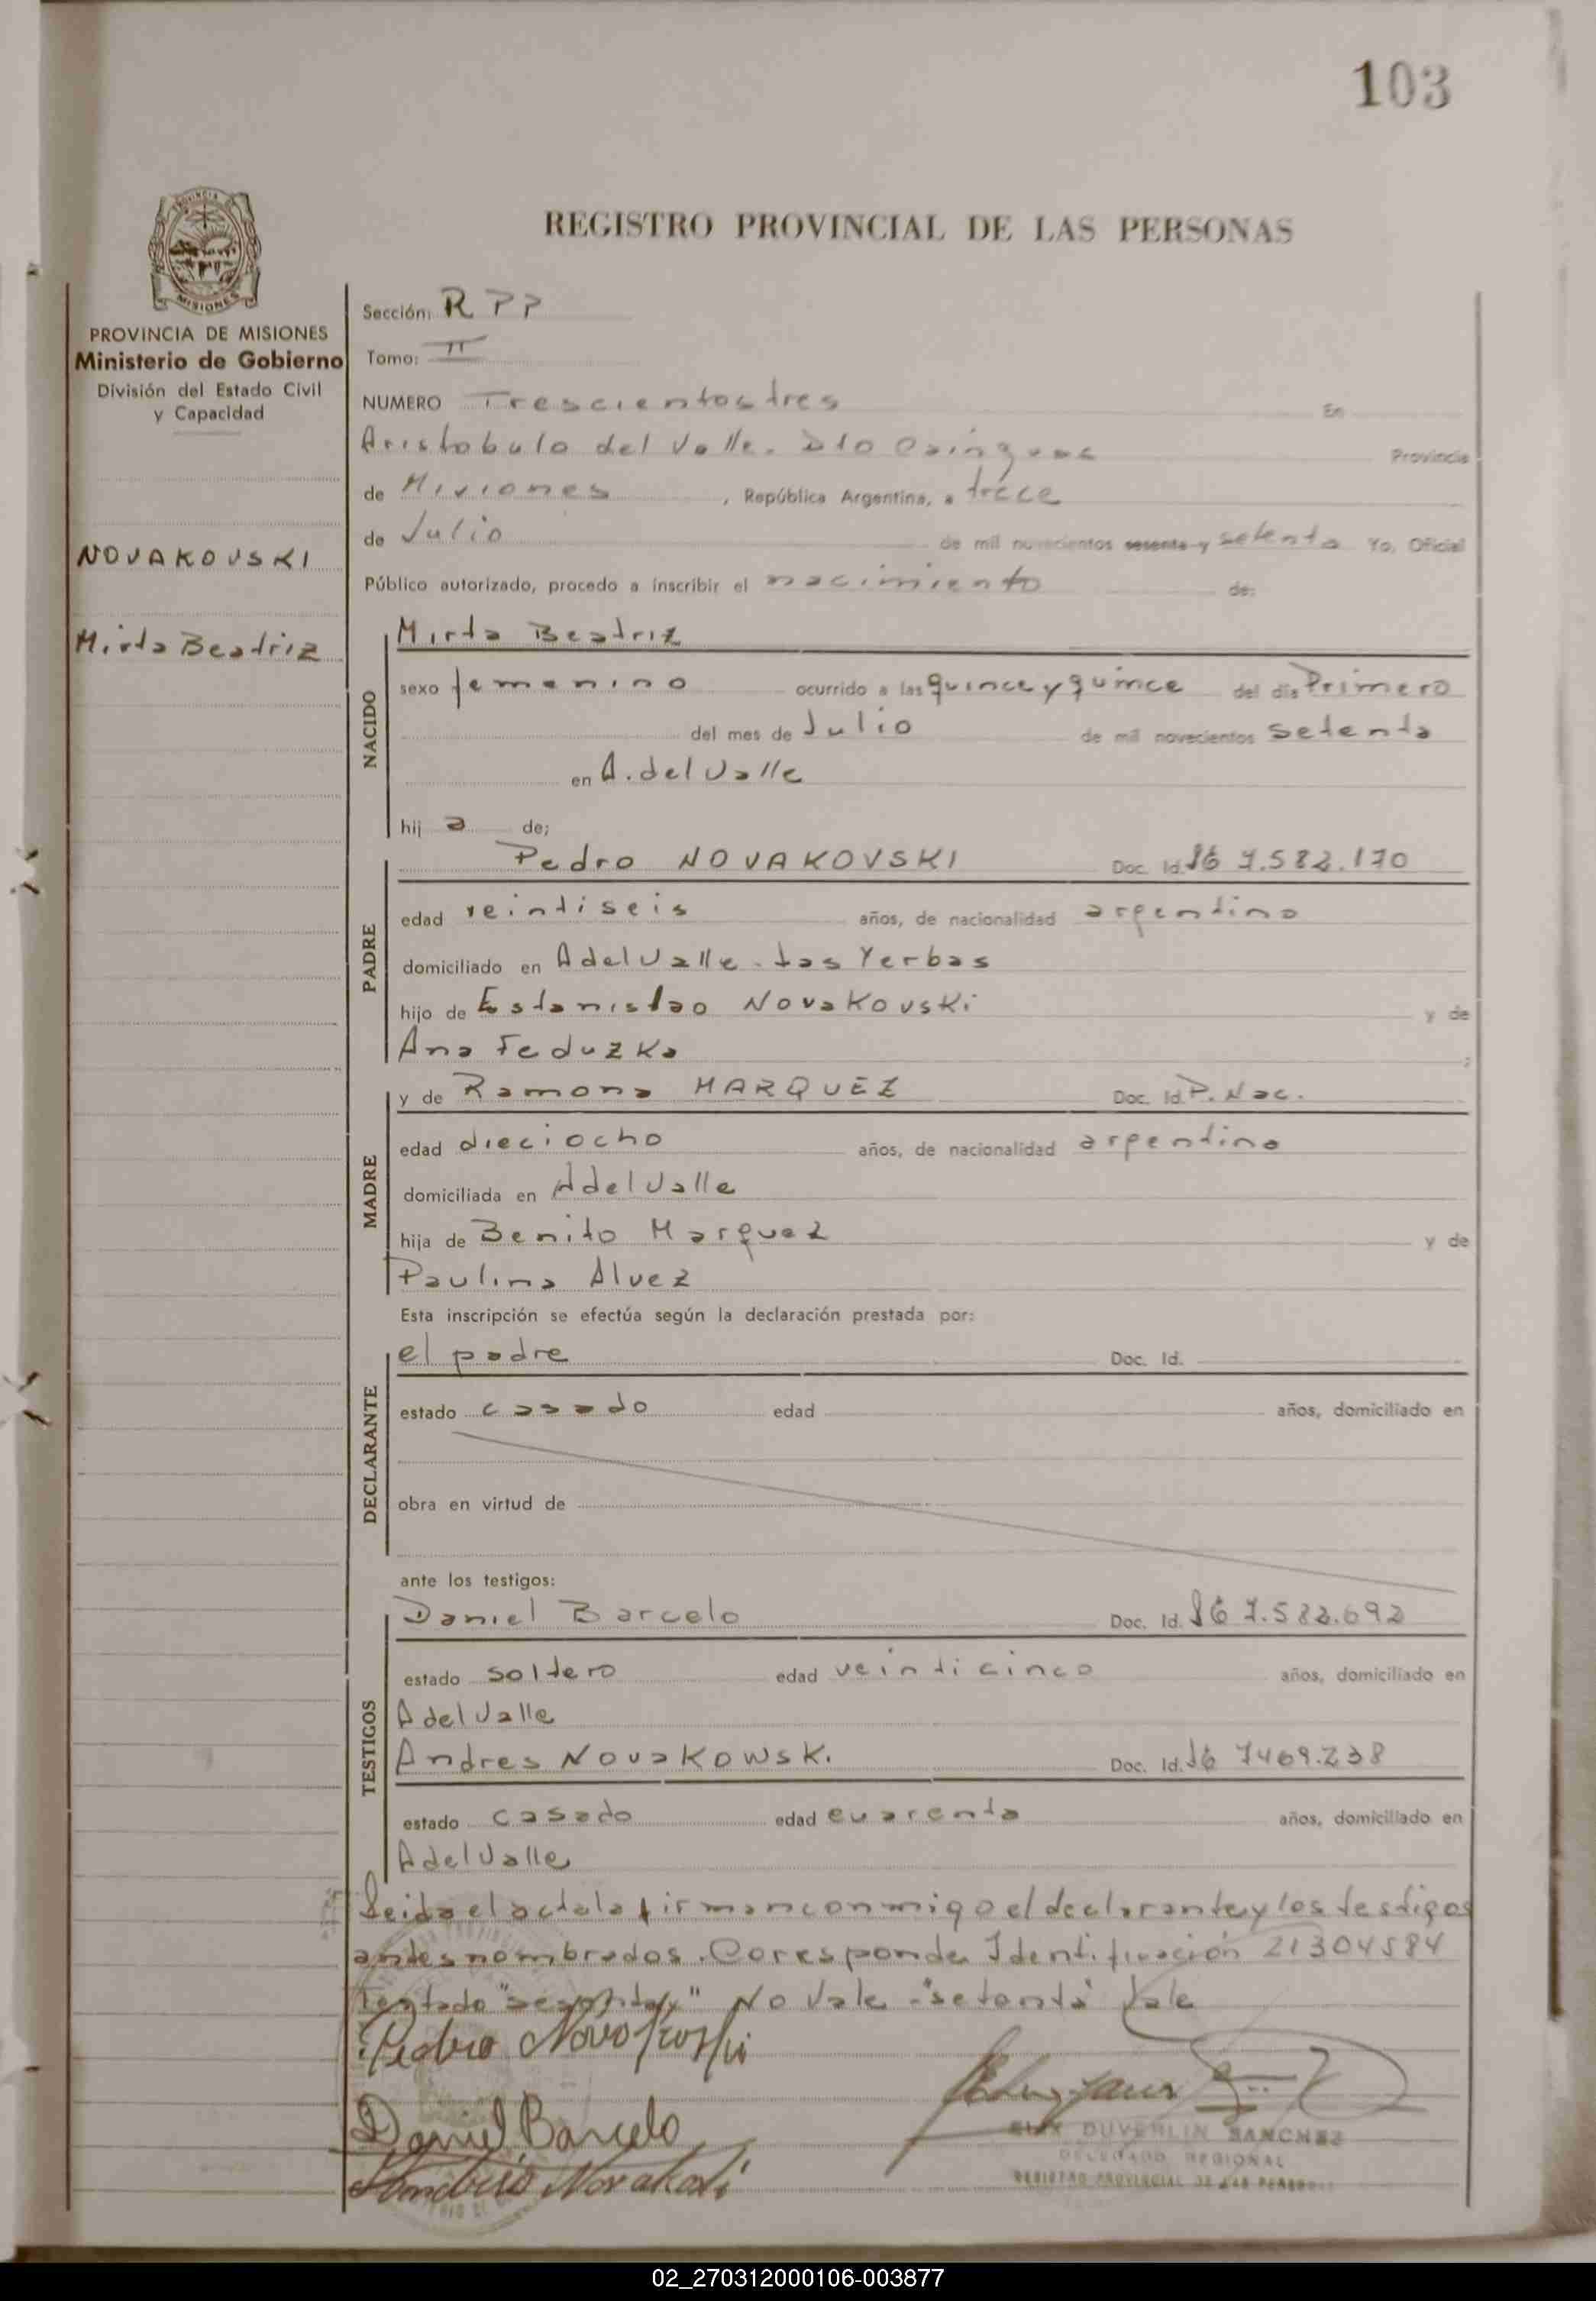 103
REGISTRO PROVINCIAL DE LAS PERSONAS
PROVINCIA DE MISIONES
Ministerio de Gobierno
División del Estado Civil
y Capacidad
NOVAKOVSKI
Mirta Beatriz
Sección: R P P
Tomo: II
NUMERO Trescientos tres En
Aristobulo del Valle. Dto Cainguas Provincia
de Misiones, República Argentina, a trece
de Julio de mil novecientos sesenta y setenta Yo, Oficial
Público autorizado, procedo a inscribir el nacimiento de:
NACIDO
Mirta Beatriz
sexo femenino ocurrido a las quince y quince del día Primero
del mes de Julio de mil novecientos setenta
en A. del Valle
hij a de;
PADRE
Pedro NOVAKOVSKI Doc. Id. 7.582.170
edad veintiseis años, de nacionalidad argentino
domiciliado en A del Valle - Las Yerbas
hijo de Estanislao Novakovski y de
Ana Feduzka;
MADRE
y de Ramona MARQUEZ Doc. Id. P. Nac.
edad dieciocho años, de nacionalidad argentina
domiciliada en A del Valle
hija de Benito Marquez y de
Paulina Alvez
Esta inscripción se efectúa según la declaración prestada por:
DECLARANTE
el padre Doc. Id.
estado casado edad años, domiciliado en
obra en virtud de
ante los testigos:
TESTIGOS
Daniel Barcelo Doc. Id. 7.582.692
estado soltero edad veinticinco años, domiciliado en
A del Valle
Andres Novakowski Doc. Id. 7469.238
estado casado edad cuarenta años, domiciliado en
A del Valle
Leida el acta la firman conmigo el declarante y los testigos
antes nombrados. Coresponde Identificación 21304584
Testado "sesenta y" No Vale - "setenta" Vale
Pedro Novakovski
Daniel Barcelo
Novakoski
DUVERLIN SANCHEZ
DELEGADO REGIONAL
REGISTRO PROVINCIAL DE LAS PERSONAS
02_270312000106-003877